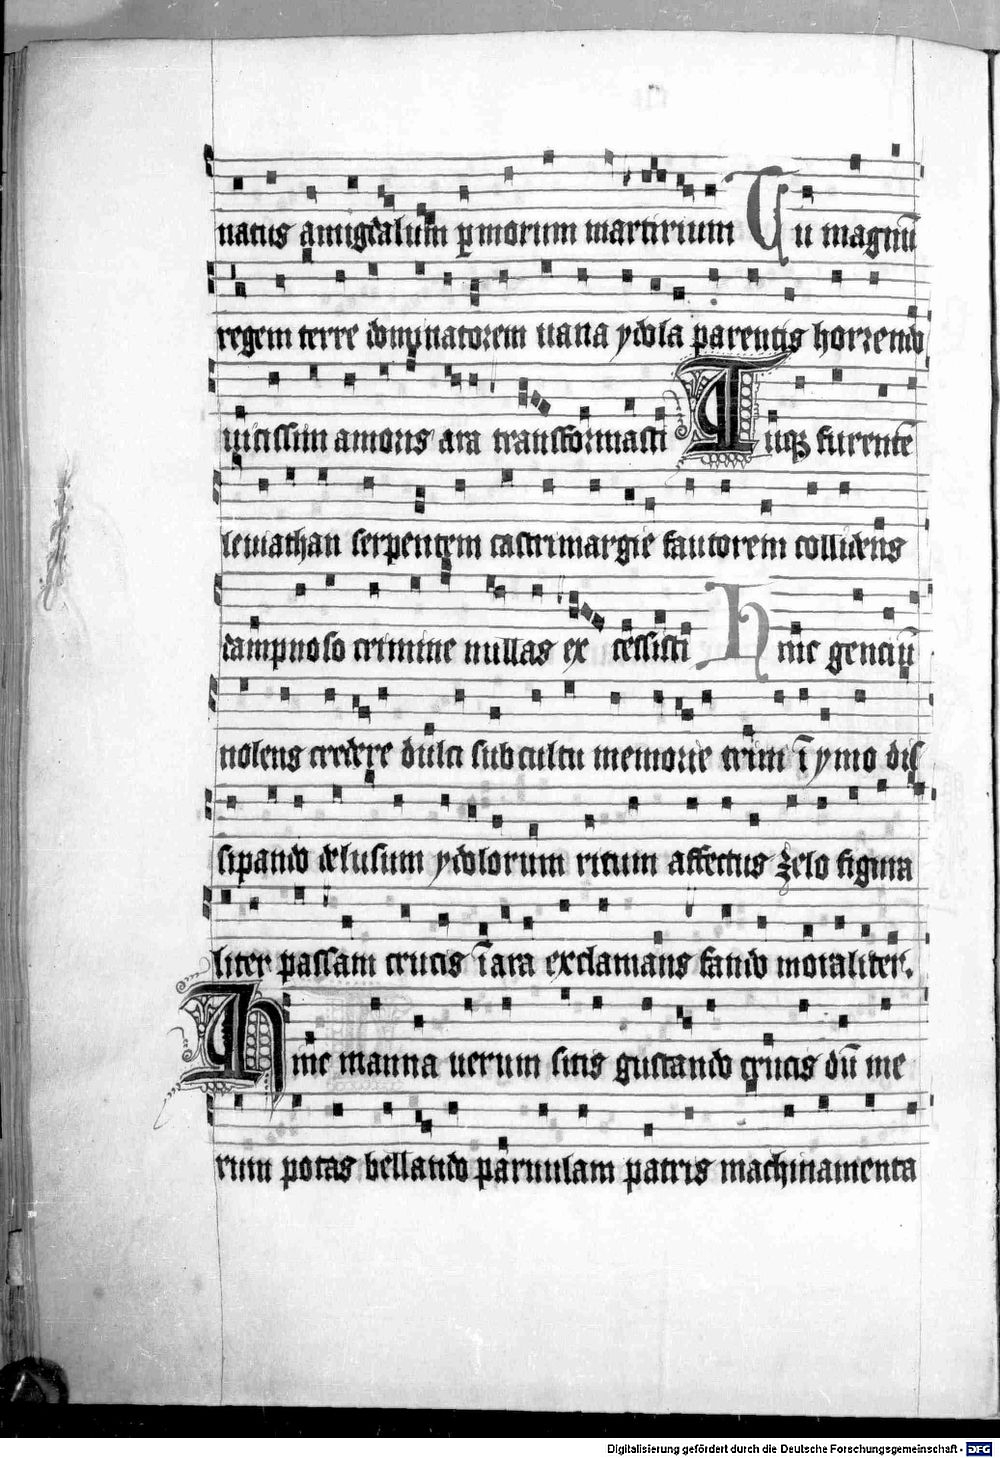 natus amigdalum p̱morum martirium Tu magnū
regem terre dominatorem uana ydola parentis horrendo
uicissim amoris ara transformasti Tuqꝫ furentē
leuiathan serpentem castrimargie fautorem collidens
dampnoso crimine nullas ex cessisti hinc genciū
nolens credere dulci sub cultu memorie trim ī ymo dis
sipando delusum ydolorum ritum affectus zelo figura
liter passam crucis ī ara exclamans fando moraliter.
Hinc manna uerum sitis gustando crucis dū me
rum potas bellando paruulam patris machinamenta
Digitalisierung gefördert durch die Deutsche Forschungsgemeinschaft - DFG